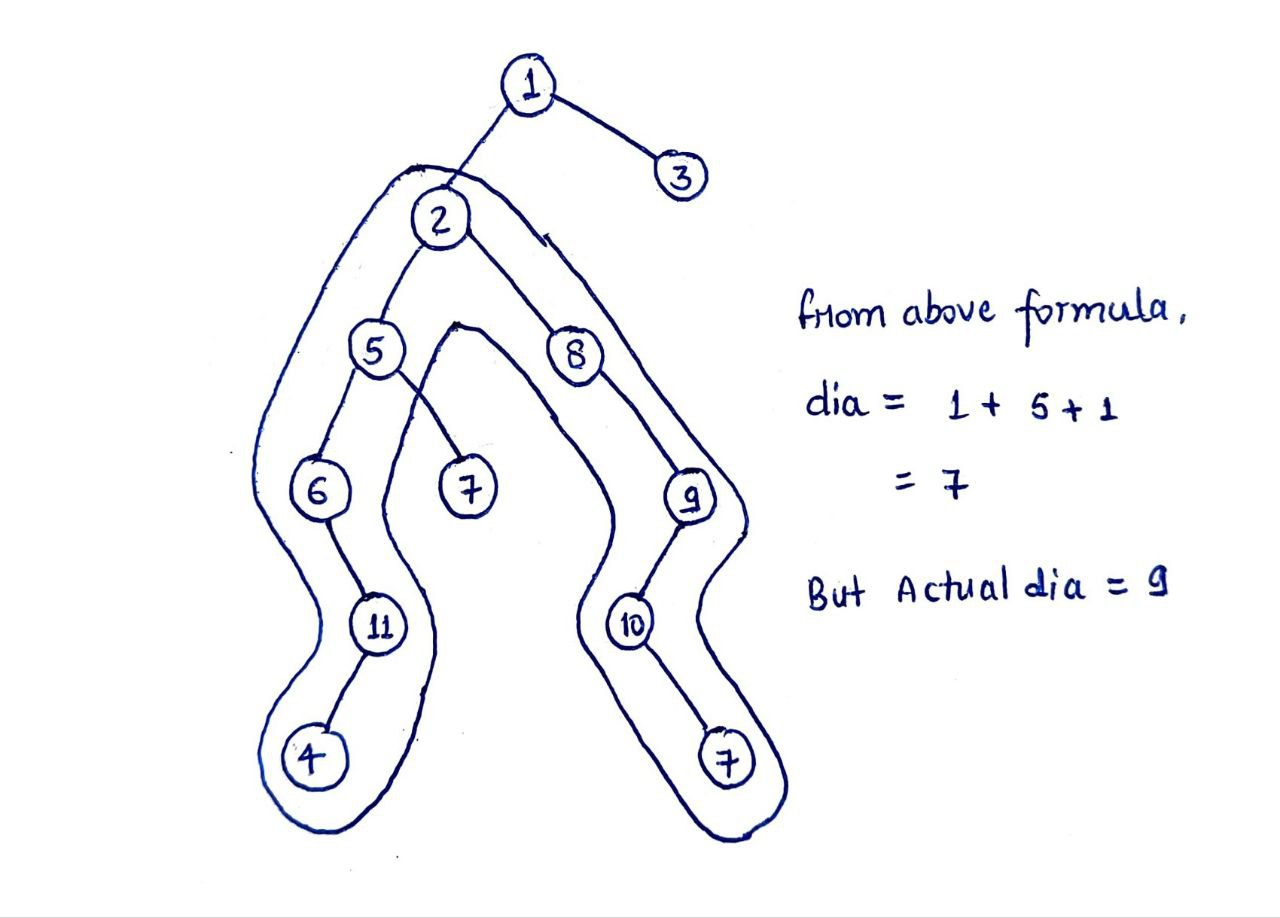 1
3
2
5
8
6
7
9
11
10
4
7
from above formula,
dia = 1 + 5 + 1
= 7
But Actual dia = 9